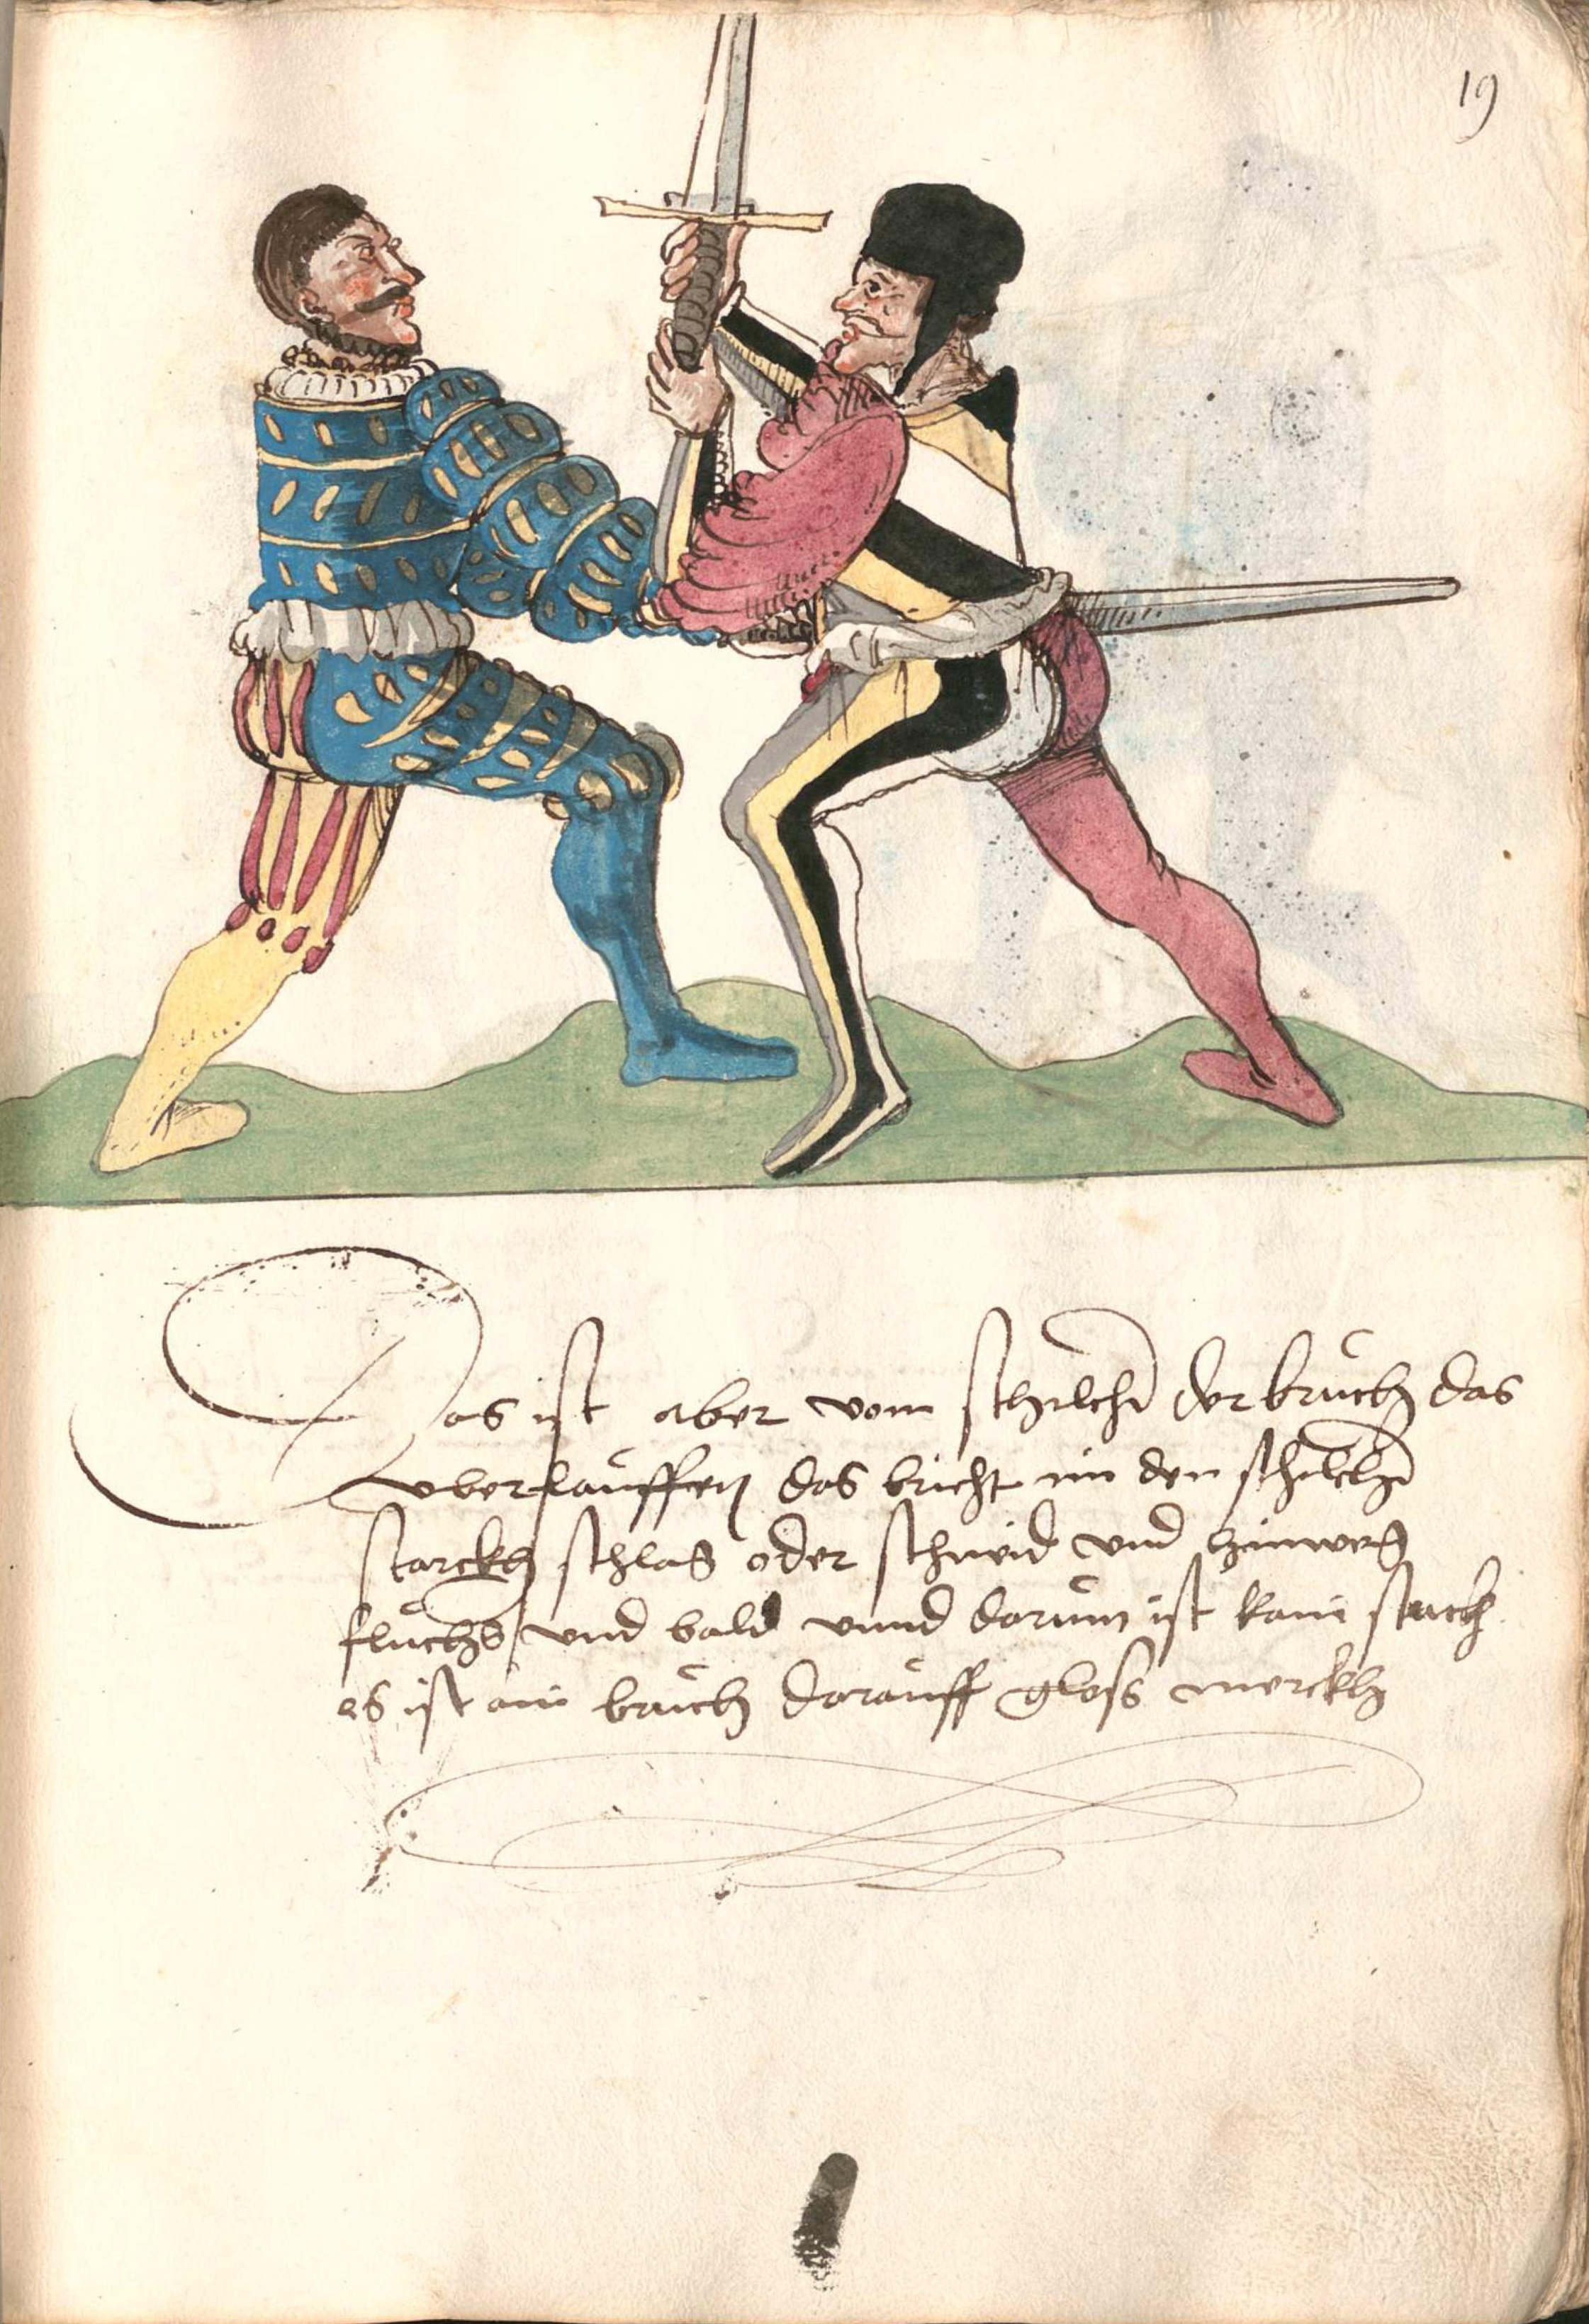 19
Das ist aber vom schilcher der bruch das
vberlauffen das bricht im den schilcher
starckh schlag oder schneid vnd hinweg
fluchs vnd bald vnnd darum ist kain stuckh
es ist ain bruch darauff gloss merckh